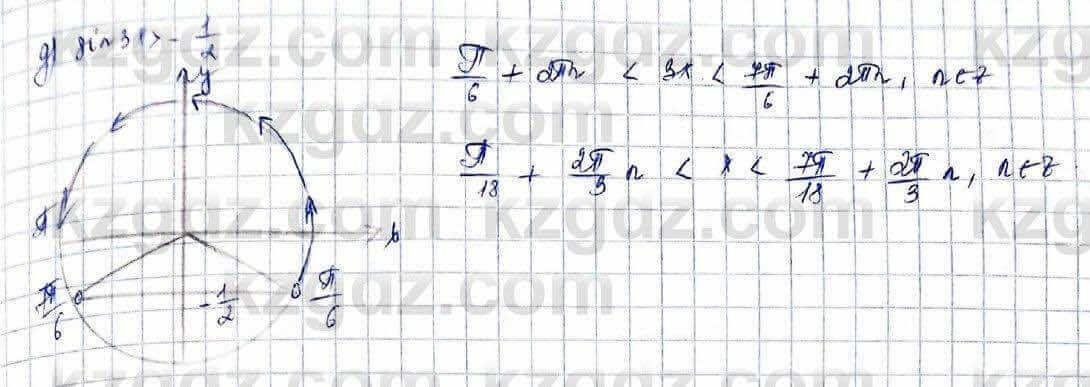 д) sin 3x > -1/2
y
π/6 + 2πn < 3x < 7π/6 + 2πn, n∈Z
π/18 + 2π/3 n < x < 7π/18 + 2π/3 n, n∈Z
π
x
7π/6
-1/2
π/6
kzgdz.com